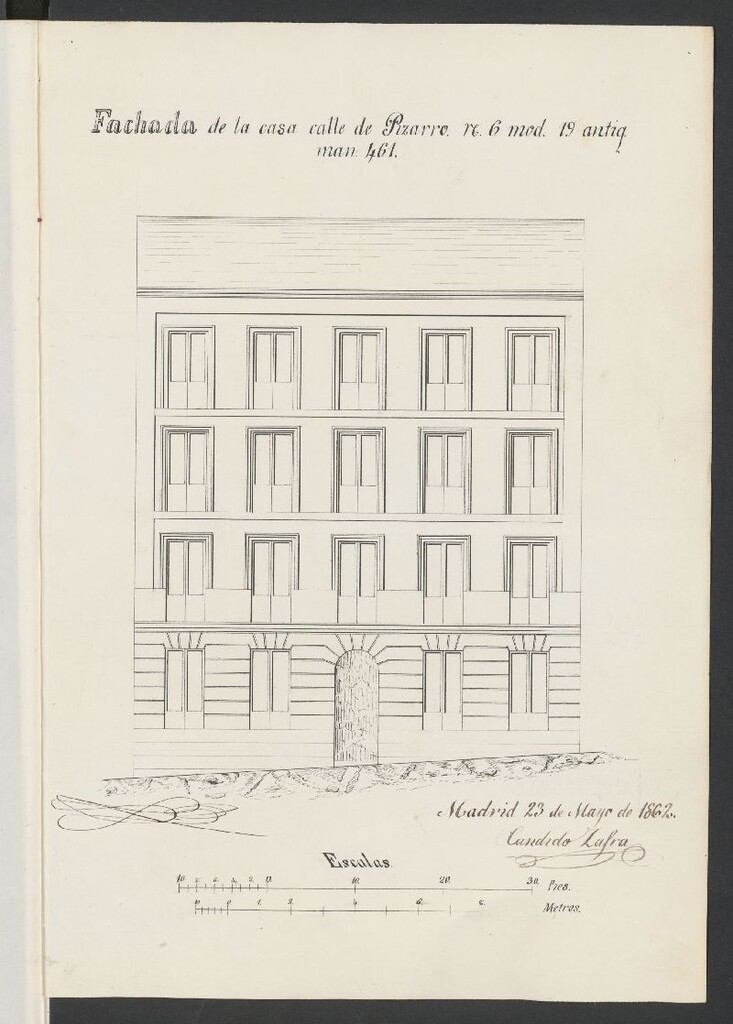 Fachada de la casa calle de Pizarro. nº. 6 mod. 19 antig
man. 461.
Madrid 23 de Mayo de 1862.
Candido Zafra
Escalas.
10 8 6 4 2 0. 10. 20. 30. Pies.
10 0 1. 2. 4. 6. 8. Metros.